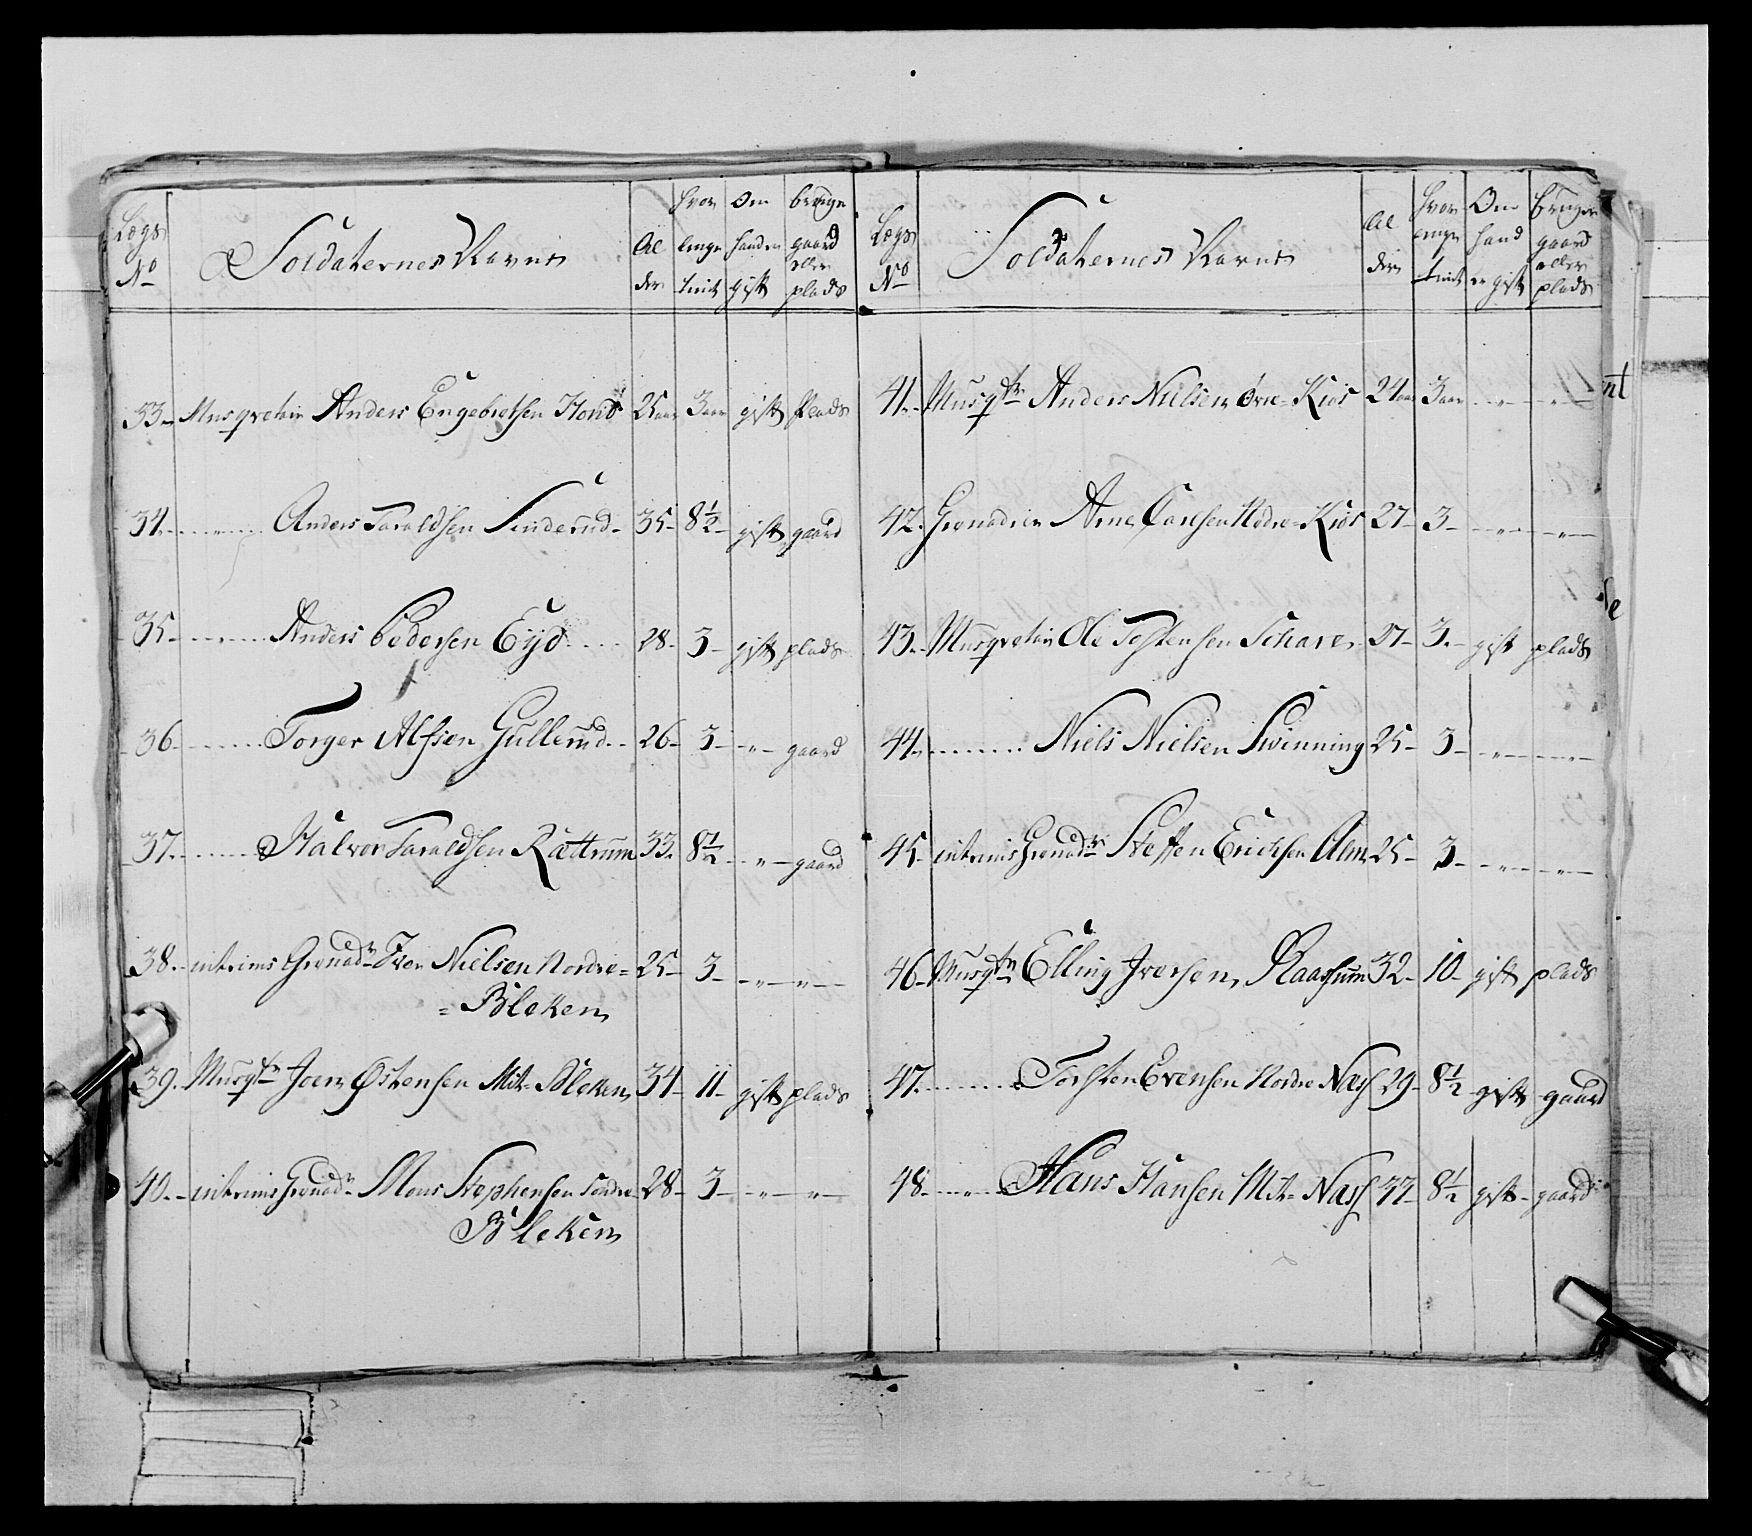 Lægs No Soldaternes Navne Alder hvor lenge tient Om hand er gift bruger gaard eller plads
33 Musqveteer Anders Engebretsen 25 aar 3 aar gift Plads
34 Anders Taraldsen Sinderud 35 8½ gift gaard
35 Anders Pedersen Eijd 28 3 gift plads
36 Torger Alfsen Gullerud 26 3 -"- gaard
37 Halvor Taraldsen Rættrum 33 8½ -"- gaard
38 intrims Grenadr Iver Nielsen Nordre=
=Bleken 25 3 -"- -"-
39 Musqtr Joen Østensen Mit= Bleken 34 11 gift plads
40 intrims Grenadr Mons Stephensen Søndre
Bleken 28 3 -"- -"-
Lægs No Soldaternes Navne Alder hvor lenge tient Om hand er gift bruger gaard eller plads
41 Musqtr Anders Nielsen Øvre=Kiøs 24 aar 3 aar -"- -"-
42 Grenadeer Arne Nedre=Kiøs 27 3 -"- -"-
43 Musqveteer Ole Tostensen 27 3 gift plads
44 Niels Nielsen Svinning 25 3 -"- -"-
45 intrims Grenadr Steffen Erichsen Alm 25 3 -"- -"-
46 Musqtr Elling Iversen 32 10 gift plads
47 Torsten Evensen Nordre Næss 29 8½ gift gaard
48 Hans Hansen Mit= Næss 33 8½ gift gaard
nt